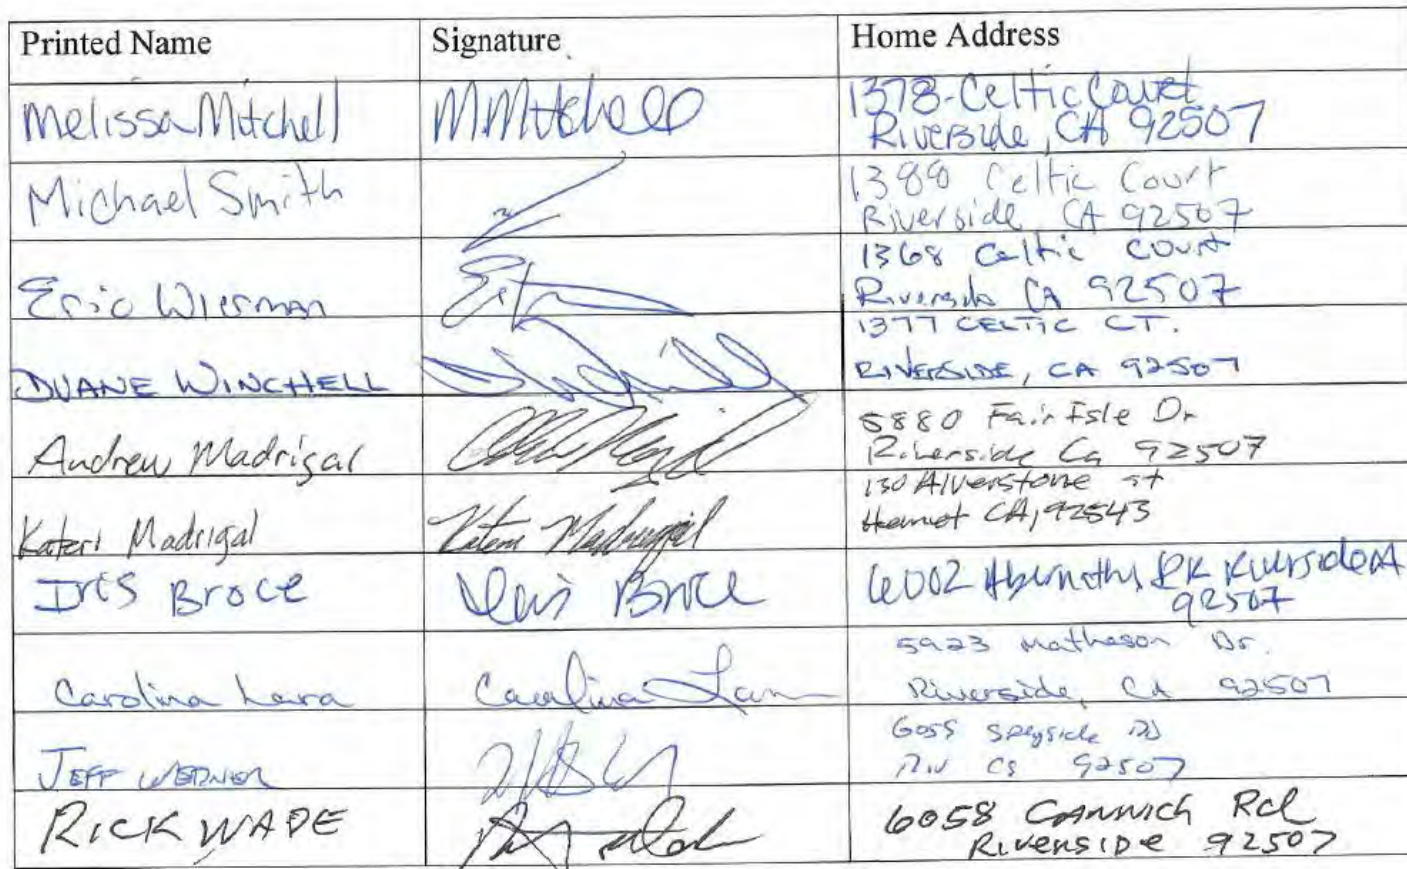 Printed Name Signature Home Address
Melissa Mitchell MMitchell 1378 Celtic Court
Riverside, CA 92507
Michael Smith 1388 Celtic Court
Riverside, CA 92507
Eric Wierman 1368 Celtic Court
Riverside CA 92507
DUANE WINCHELL 1377 CELTIC CT.
RIVERSIDE, CA 92507
Andrew Madrigal 5880 Fair Isle Dr
Riverside Ca 92507
Kateri Madrigal Kateri Madrigal 130 Alverstone st
Hemet CA, 92543
Iris Broce Iris Broce 6002 Abernathy DR Riverside CA
92507
Carolina Lara Carolina Lara 5923 Matheson Dr.
Riverside, CA 92507
JEFF 6055 Speyside RD
Riv CA 92507
RICK WADE 6058 Rd
Riverside 92507